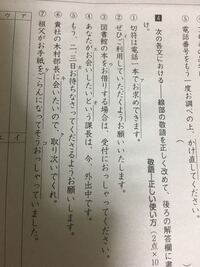 ⑤電話番号をもう一度お調べの上、かけ直してください。
4 次の各文における――線部の敬語を正しく改めて、後ろの解答欄に書
け。
敬語―正しい使い方 (2点×10
①切符は電話一本でお求めできます。
②ぜひご利用していただくようお願いいたします。
③図書館の本をお借りする場合は、受付におっしゃってください。
④あなたがお会いしたいという課長は、今、外出中です。
⑤もう、二、三日お待ちなさってくださるようお願いします。
⑥貴社の木村部長に会いたいので、取り次いでくれ。
⑦祖父がお手紙をごらんになってそうおっしゃっていました。
ア
ウ
エ